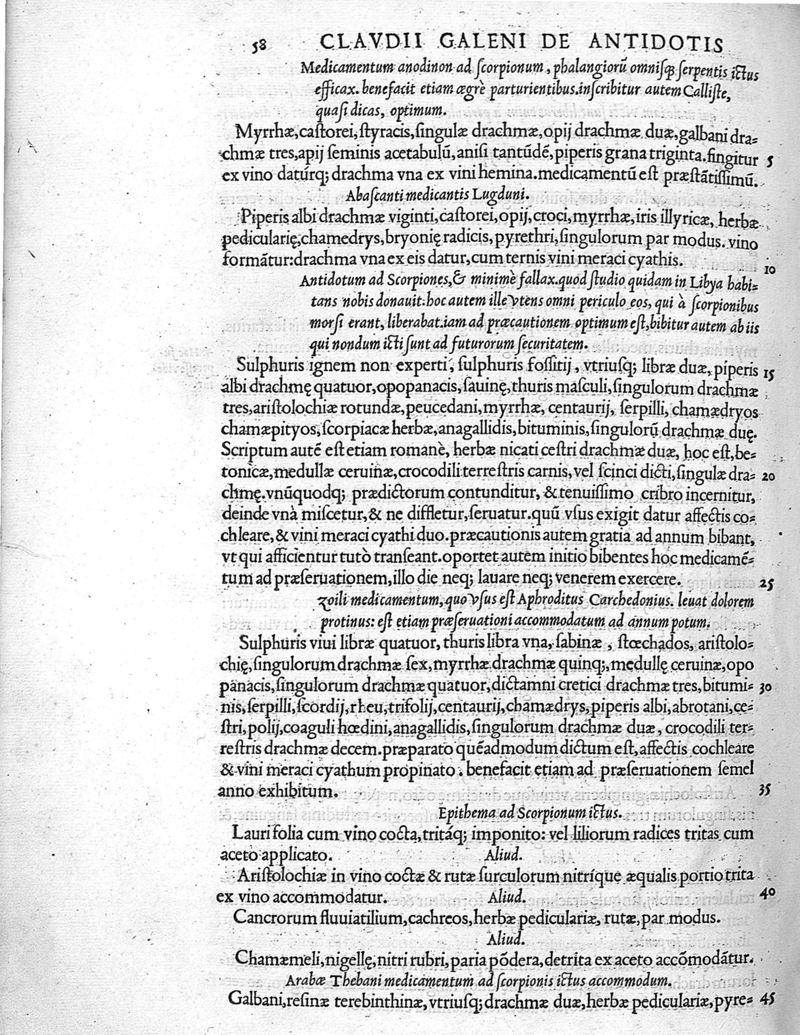 58 CLAVDII GALENI DE ANTIDOTIS
Medicamentum anodinon ad scorpionum, phalangiorũ omnisq; serpentis ictus
efficax. benefacit etiam ægrè parturientibus. inscribitur autem Calliste,
quasi dicas, optimum.
Myrrhæ, castorei, styracis, singulæ drachmæ, opij drachmæ duæ, galbani dra=
chmæ tres, apij seminis acetabulũ, anisi tantũdẽ, piperis grana triginta. fingitur 5
ex vino daturq; drachma vna ex vini hemina. medicamentũ est præstãtissimũ.
Abascanti medicantis Lugduni.
Piperis albi drachmæ viginti, castorei, opij, croci, myrrhæ, iris illyricæ, herbæ
pedicularię, chamedrys, bryonię radicis, pyrethri, singulorum par modus. vino
formãtur: drachma vna ex eis datur, cum ternis vini meraci cyathis. 10
Antidotum ad Scorpiones, & minimè fallax. quod studio quidam in Libya habi=
tans nobis donauit: hoc autem ille vtens omni periculo eos, qui à scorpionibus
morsi erant, liberabat. iam ad præcautionem optimum est, bibitur autem ab iis
qui nondum icti sunt ad futurorum securitatem.
Sulphuris ignem non experti, sulphuris fossitij, vtriusq; libræ duæ, piperis 15
albi drachmę quatuor, opopanacis, sauinę, thuris masculi, singulorum drachmæ
tres, aristolochiæ rotundæ, peucedani, myrrhæ, centaurij, serpilli, chamædryos
chamæpityos, scorpiacæ herbæ, anagallidis, bituminis, singulorũ drachmæ duę.
Scriptum autẽ est etiam romanè, herbæ nicati cestri drachmæ duæ, hoc est, be=
tonicæ, medullæ ceruinæ, crocodili terrestris carnis, vel scinci dicti, singulæ dra= 20
chmę. vnũquodq; prædictorum contunditur, & tenuissimo cribro incernitur,
deinde vnà miscetur, & ne diffletur, seruatur. quũ vsus exigit datur affectis co=
chleare, & vini meraci cyathi duo. præcautionis autem gratia ad annum bibant,
vt qui afficientur tutò transeant. oportet autem initio bibentes hoc medicamẽ=
tum ad præseruationem, illo die neq; lauare neq; venerem exercere. 25
Zoili medicamentum, quo vsus est Aphroditus Carchedonius. leuat dolorem
protinus: est etiam præseruationi accommodatum ad annum potum.
Sulphuris viui libræ quatuor, thuris libra vna, sabinæ, stœchados, aristolo=
chię, singulorum drachmæ sex, myrrhæ drachmæ quinq;, medullę ceruinæ, opo
panacis, singulorum drachmæ quatuor, dictamni cretici drachmæ tres, bitumi= 30
nis, serpilli, scordij, rheu, trifolij, centaurij, chamædrys, piperis albi, abrotani, ce=
stri, polij, coaguli hœdini, anagallidis, singulorum drachmæ duæ, crocodili ter=
restris drachmæ decem. præparato quẽadmodum dictum est, affectis cochleare
& vini meraci cyathum propinato. benefacit etiam ad præseruationem semel
anno exhibitum. 35
Epithema ad Scorpionum ictus.
Lauri folia cum vino cocta, tritáq; imponito: vel liliorum radices tritas cum
aceto applicato. Aliud.
Aristolochiæ in vino coctæ & rutæ surculorum nitrique æqualis portio trita
ex vino accommodatur. Aliud. 40
Cancrorum fluuiatilium, cachreos, herbæ pediculariæ, rutæ, par modus.
Aliud.
Chamæmeli, nigellę, nitri rubri, paria põdera, detrita ex aceto accõmodãtur.
Arabæ Thebani medicamentum ad scorpionis ictus accommodum.
Galbani, resinæ terebinthinæ, vtriusq; drachmæ duæ, herbæ pediculariæ, pyre= 45